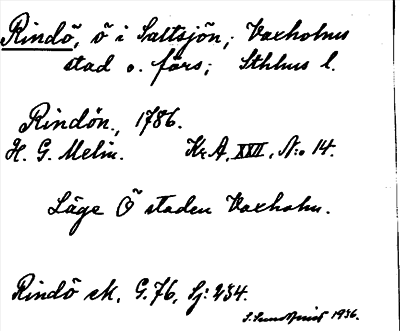 Rindö, ö i Saltsjön, Vaxholms
stad o. förs; Sthlms l.
Rindön., 1786.
H. G. Melin. Kr. A. XVII, N:o 14.
Läge Ö staden Vaxholm.
Rindö sk. G. 76, Sj: 234.
1936.